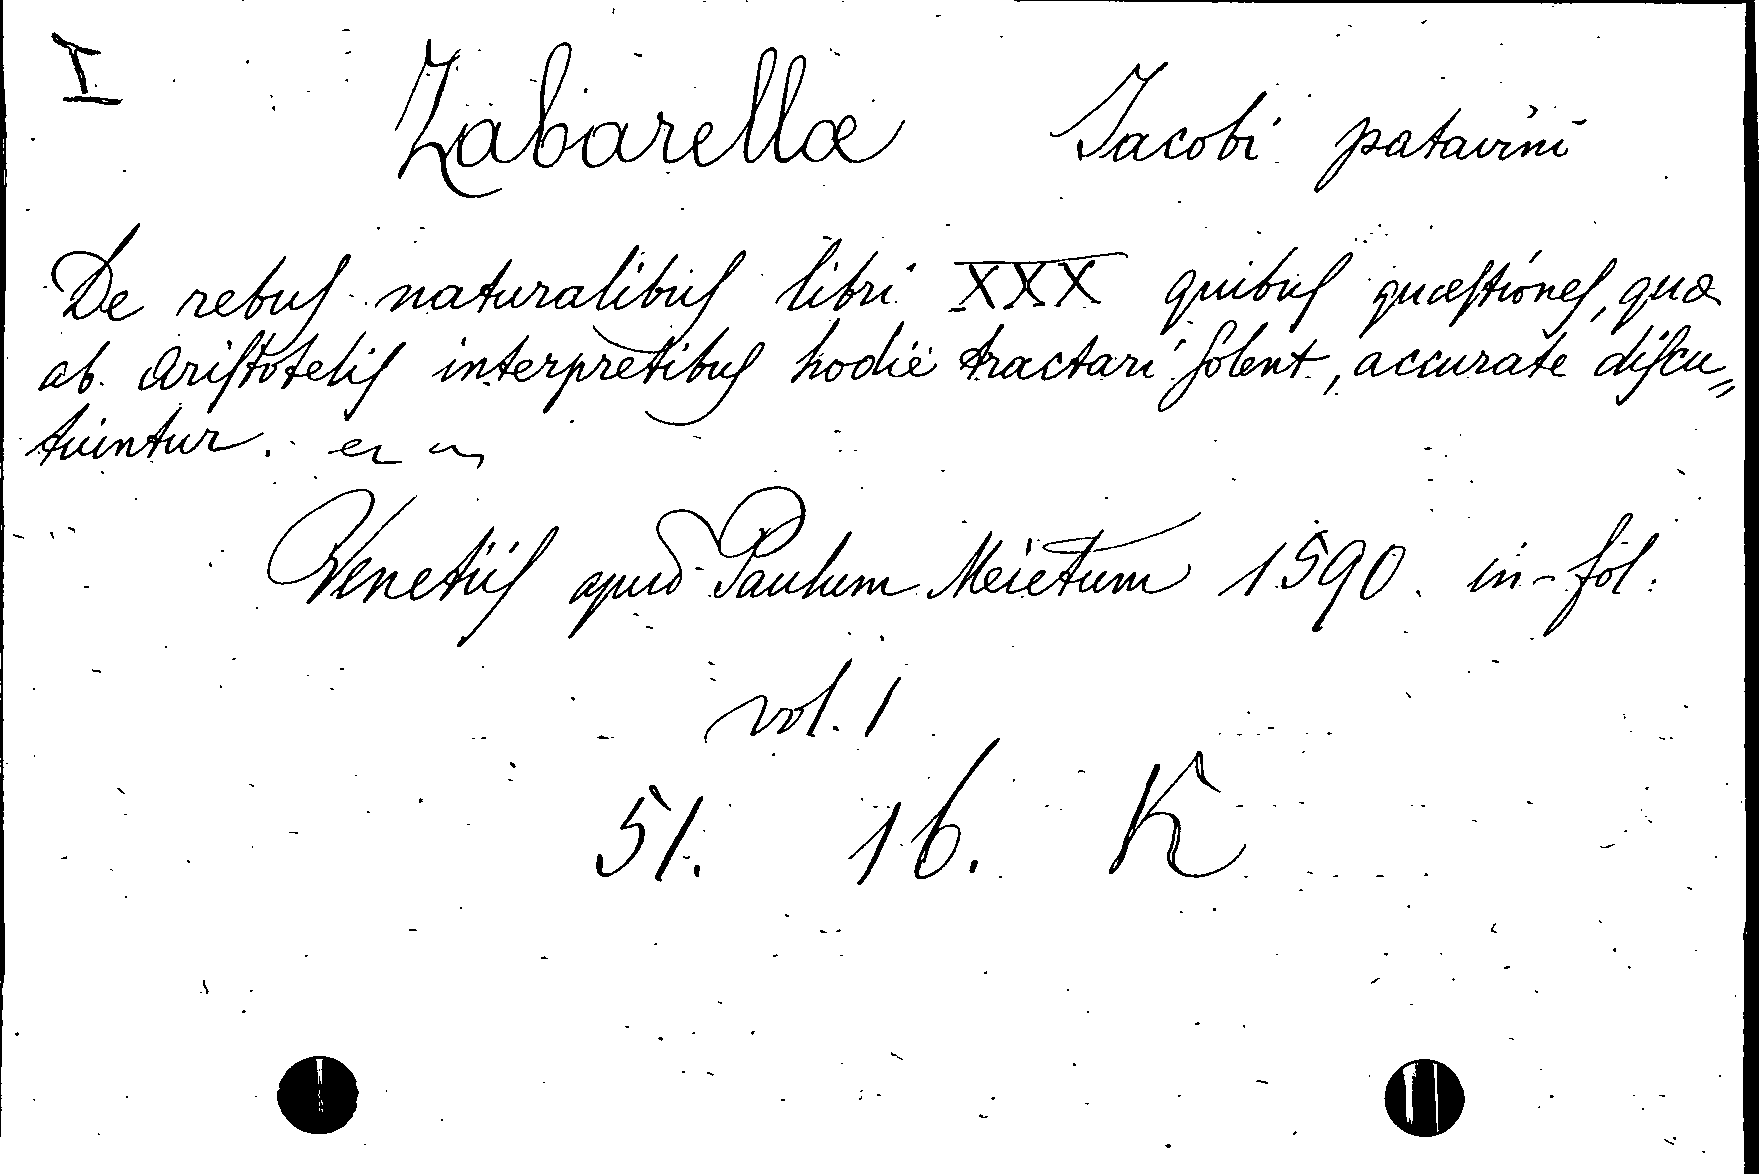 I
Zabarellæ Jacobi patavini
De rebus naturalibus libri XXX quibus quæstiones, quæ
ab Aristotelis interpretibus hodie tractari solent, accurate discu„
tuintur.
Venetiis apud Paulum Meietum 1590. in-fol.
vol. 1
51. 16. K